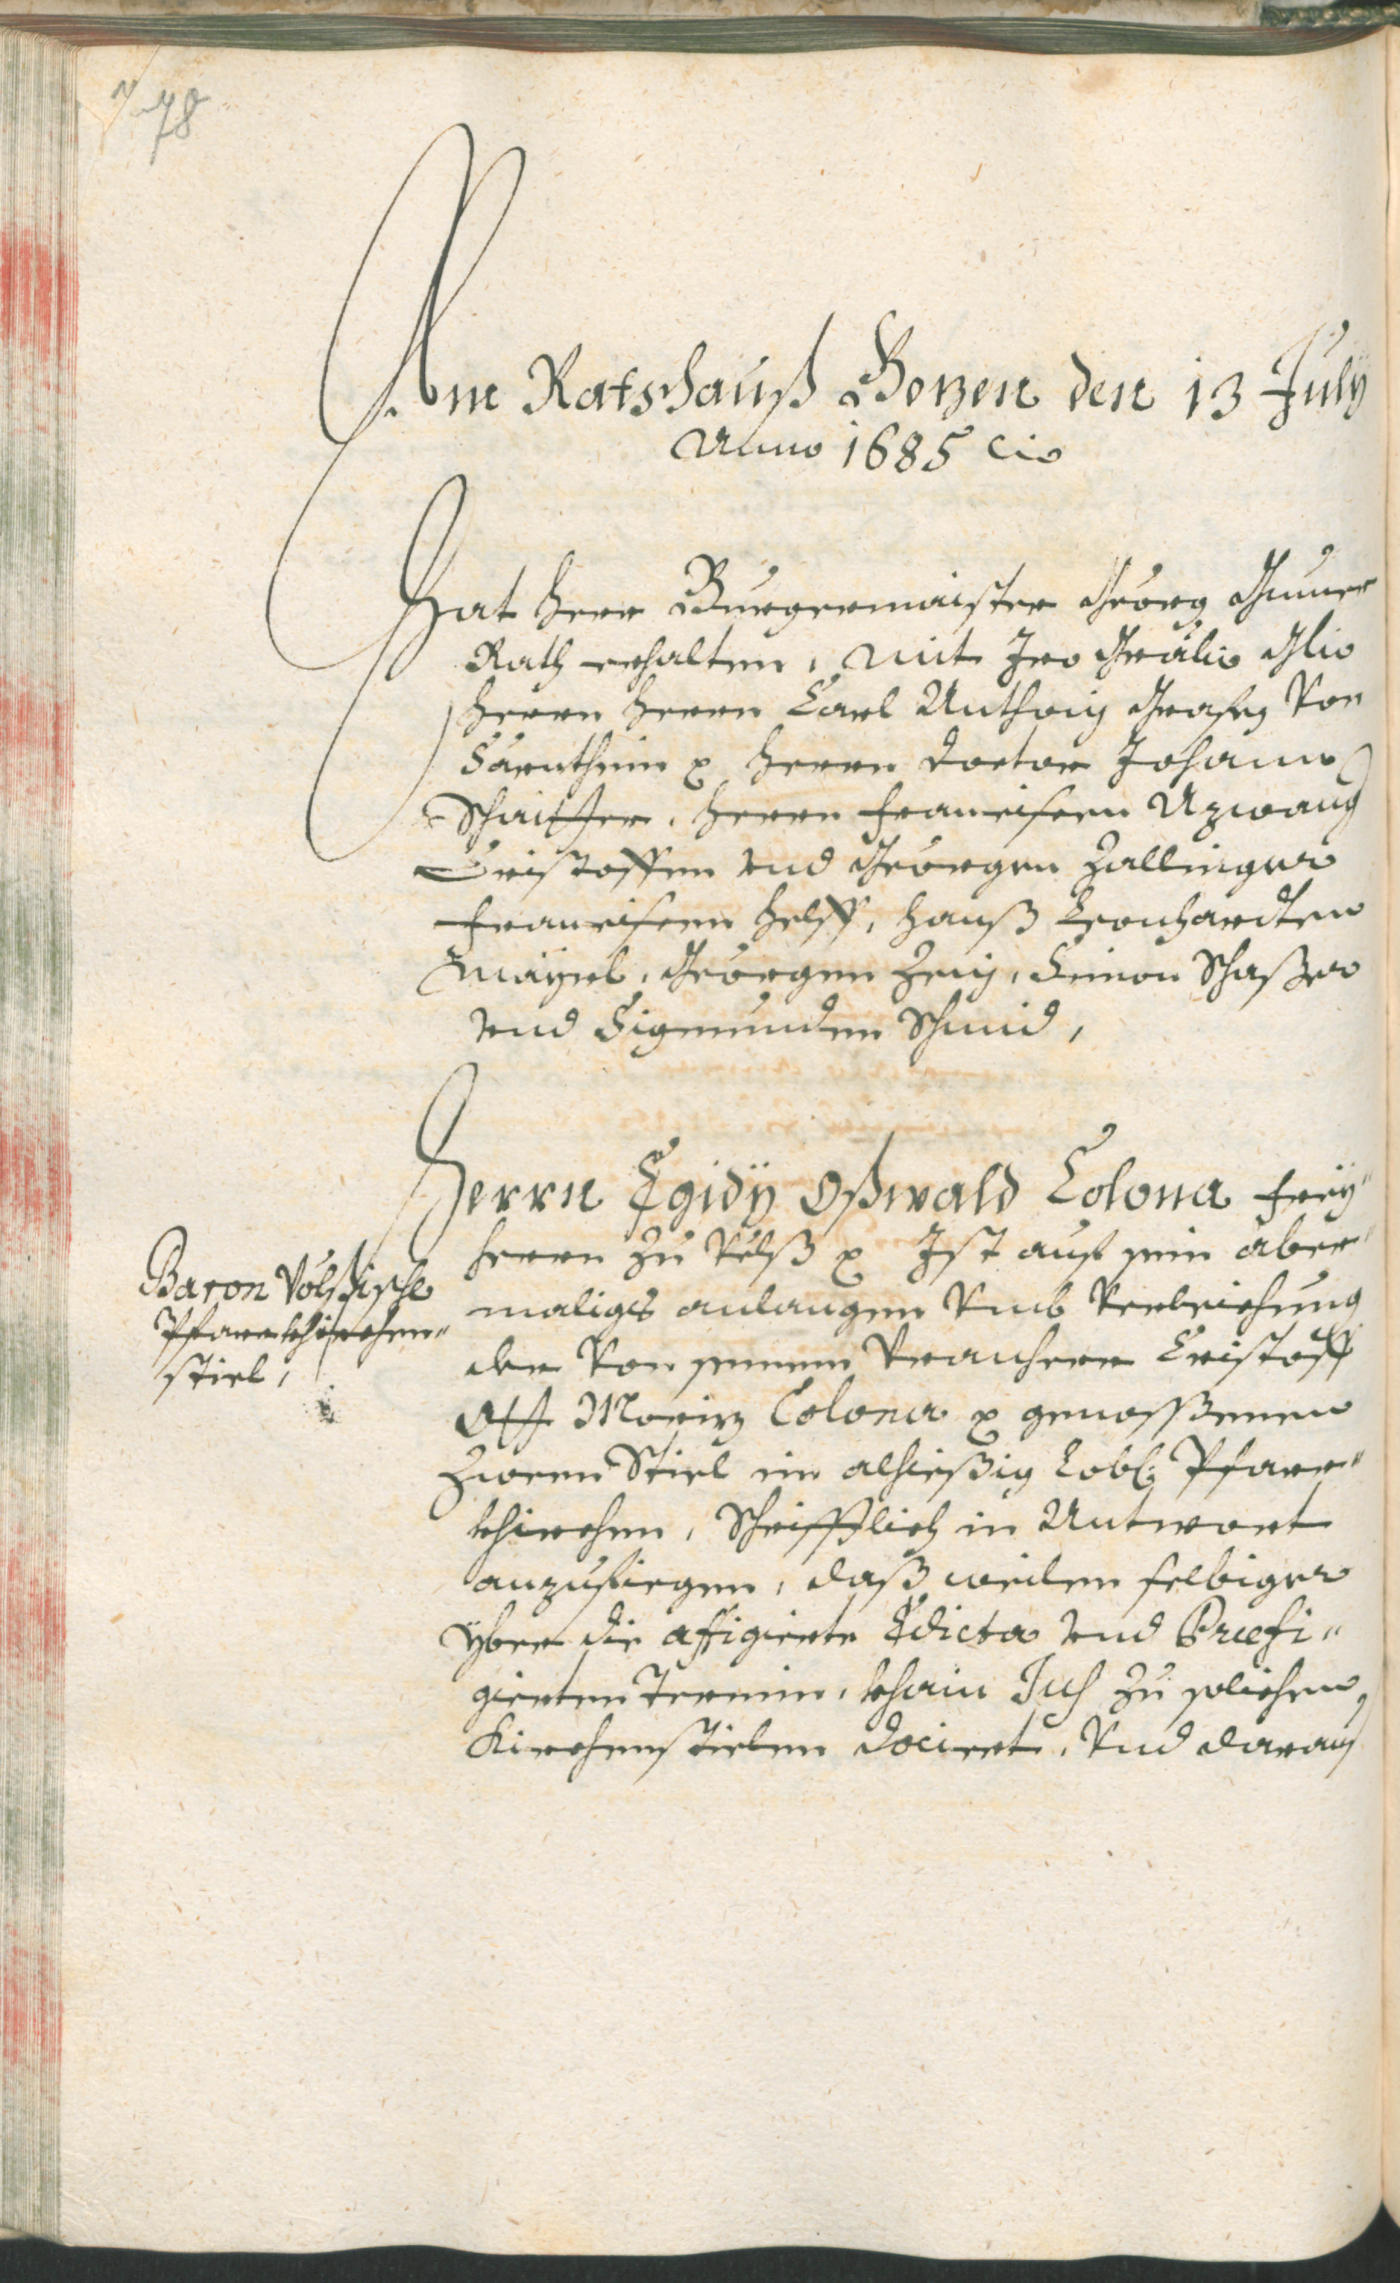 78
Am Ratshauß Bozen den 13 July
Anno 1685 etc
Hat Herr Burgermaister Georg Gumer
Rath gehalten, mit Iro
Herrn Herrn Carl Anthoni Grafen von
Sarnthein etc Herrn Doctor Johann
Herrn Francisen Azwang
Cristoffen vnd Georgen Zallinger
Francisen Helff, Hanß Leonhardten
Mayrl, Georgen Zeni, Simon Schaffer
vnd Sigmunden Schmid,
Herrn Egidÿ Oßwald Colona Freÿ"
herrn zu Velß etc Ist auf sein aber"
maliges anlangen vmb verleichung
der von seinem Vranherrn Cristoff
Ott Moriz Colona etc genossßenen
zween Stiel in alhießig Lobl: Pfarr"
khirchen, Schrifftlich in Antwort
anzufiegen, daß weilen selbiger
yber die affigierte Edicta vnd Præfi"
gierten Termin, khain Jus zu solichen
Kirchenstielen dociert, vnd daraus
Baron Völßische
Pfarrkhirchen"
stiel,